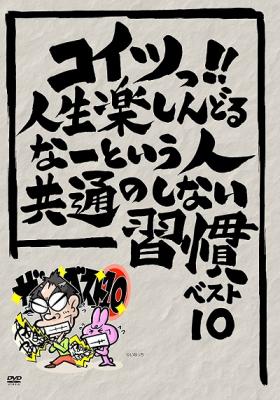 コイツっ!!
人生楽しんどる
なーという人
共通のしない
習慣
ベスト
10
ザ・ベスト10
DVD